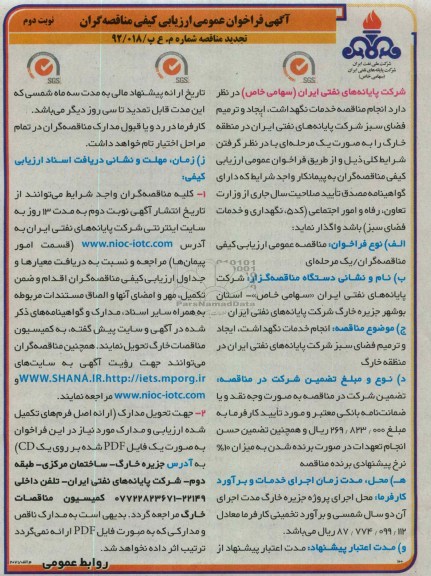 آگهی فراخوان عمومی ارزیابی کیفی مناقصه‌گران
نوبت دوم
تجدید مناقصه شماره م.ع پ/۹۲/۰۱۸
شرکت ملی نفت ایران
شرکت پایانه‌های نفتی ایران
(سهامی خاص)
SGS
SGS
SGS
شرکت پایانه‌های نفتی ایران (سهامی خاص) در نظر
دارد انجام مناقصه خدمات نگهداشت، ایجاد و ترمیم
فضای سبز شرکت پایانه‌های نفتی ایران در منطقه
خارگ را به صورت یک مرحله‌ای با در نظر گرفتن
شرایط کلی ذیل و از طریق فراخوان عمومی ارزیابی
کیفی مناقصه‌گران به پیمانکار واجد شرایط که دارای
گواهینامه مصدق تأیید صلاحیت سال جاری از وزارت
تعاون، رفاه و امور اجتماعی (کد۵، نگهداری و خدمات
فضای سبز) باشد واگذار نماید:
الف) نوع فراخوان: مناقصه عمومی ارزیابی کیفی
مناقصه‌گران/یک مرحله‌ای
ب) نام و نشانی دستگاه مناقصه‌گزار: شرکت
پایانه‌های نفتی ایران -سهامی خاص-- استان
بوشهر جزیره خارگ شرکت پایانه‌های نفتی ایران
ج) موضوع مناقصه: انجام خدمات نگهداشت، ایجاد
و ترمیم فضای سبز شرکت پایانه‌های نفتی ایران در
منطقه خارگ
د) نوع و مبلغ تضمین شرکت در مناقصه:
تضمین شرکت در مناقصه به صورت وجه نقد و یا
ضمانت‌نامه بانکی معتبر و مورد تأیید کارفرما به
مبلغ ۲۶۹/۸۲۳/۰۰۰ ریال و همچنین تضمین حسن
انجام تعهدات در صورت برنده شدن به میزان ۱۰%
نرخ پیشنهادی برنده مناقصه
هـ) محل، مدت زمان اجرای خدمات و برآورد
کارفرما: محل اجرای پروژه جزیره خارگ مدت اجرای
آن دو سال شمسی و برآورد تخمینی کارفرما معادل
۸۷/۷۷۴/۰۹۹/۱۱۲ ریال می‌باشد.
و) مدت اعتبار پیشنهاد: مدت اعتبار پیشنهاد از
تاریخ ارائه پیشنهاد مالی به مدت سه ماه شمسی که
این مدت قابل تمدید تا سی روز دیگر می‌باشد.
کارفرما در رد و یا قبول مدارک مناقصه‌گران در تمام
مراحل اختیار تام خواهد داشت.
ز) زمان، مهلت و نشانی دریافت اسناد ارزیابی
کیفی:
۱- کلیه مناقصه‌گران واجد شرایط می‌توانند از
تاریخ انتشار آگهی نوبت دوم به مدت ۱۳ روز به
سایت اینترنتی شرکت پایانه‌های نفتی ایران به
آدرس www.nioc-iotc.com (قسمت امور
پیمان‌ها) مراجعه و نسبت به دریافت معیارها و
جداول ارزیابی کیفی مناقصه‌گران اقدام و ضمن
تکمیل، مهر و امضای آنها و الصاق مستندات مربوطه
به همراه سایر اسناد، مدارک و گواهینامه‌های ذکر
شده در آگهی و سایت پیش گفته، به کمیسیون
مناقصات خارگ تحویل نمایند. همچنین مناقصه‌گران
می‌توانند جهت رؤیت آگهی به سایت‌های
WWW.SHANA.IR.http://iets.mporg.ir و
www.nioc-iotc.com مراجعه نمایند.
۲- جهت تحویل مدارک (ارائه اصل فرم‌های تکمیل
شده ارزیابی و مدارک مورد نیاز در این فراخوان
به صورت یک فایل PDF شده بر روی یک CD)
به آدرس جزیره خارگ- ساختمان مرکزی- طبقه
دوم- شرکت پایانه‌های نفتی ایران- تلفن داخلی
۲۲۱۴۹-۰۷۷۲۲۸۲۳۶۷۱ کمیسیون مناقصات
خارگ مراجعه گردد. بدیهی است به مدارک ناقص
و مدارکی که به صورت فایل PDF ارائه نمی‌گردد
ترتیب اثر داده نخواهد شد.
روابط عمومی